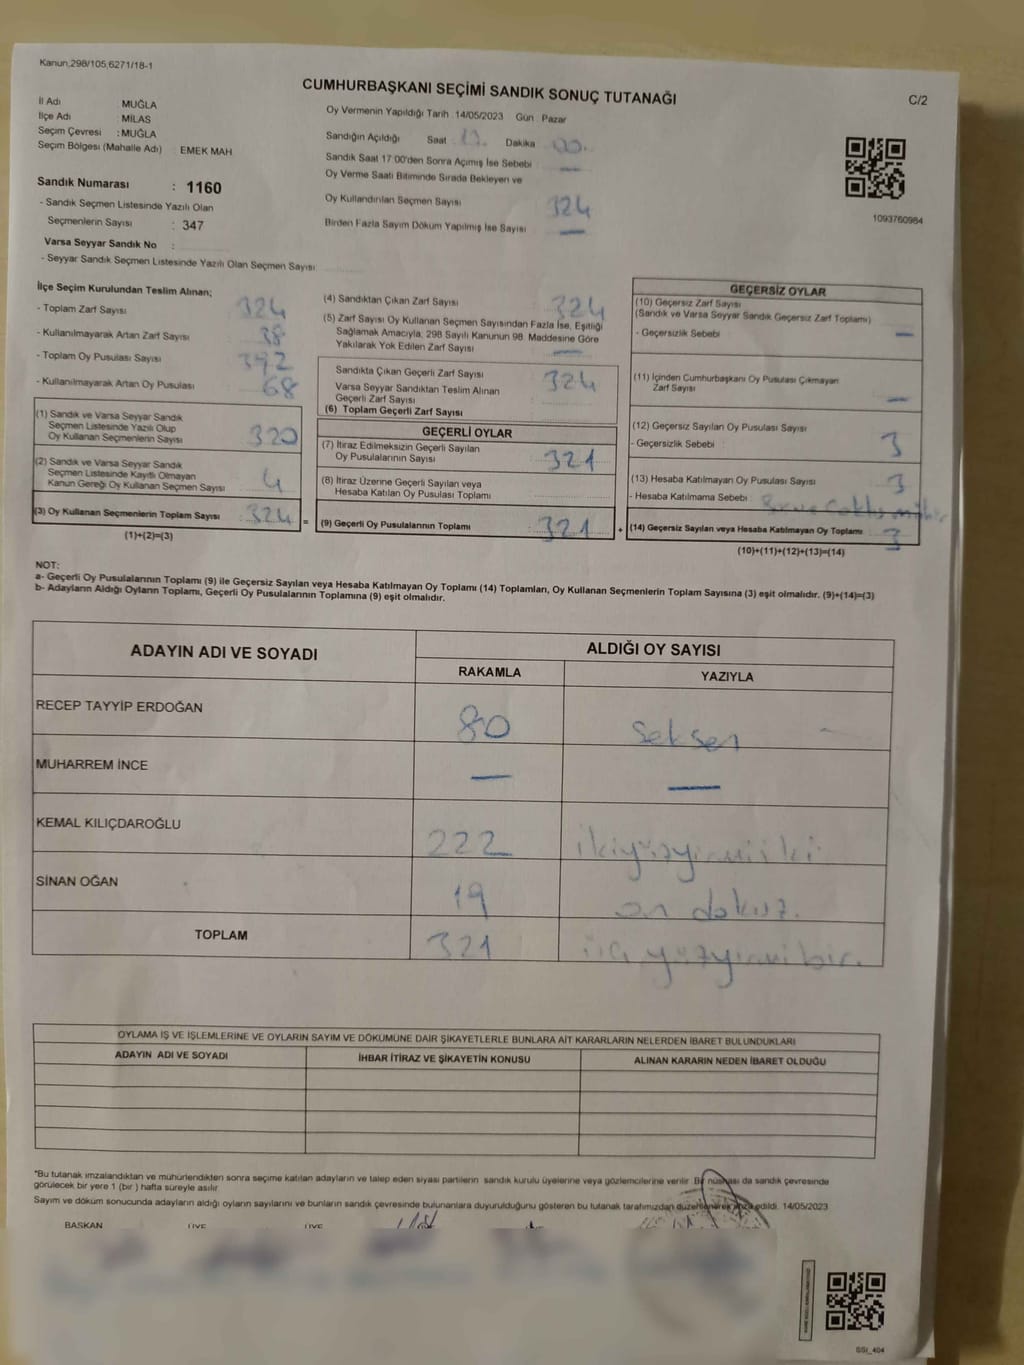 Kanun,298/105,6271/18-1
CUMHURBAŞKANI SEÇİMİ SANDIK SONUÇ TUTANAĞI
C/2
İl Adı MUĞLA
İlçe Adı : MİLAS
Seçim Çevresi : MUĞLA
Seçim Bölgesi (Mahalle Adı) : EMEK MAH
Sandık Numarası : 1160
- Sandık Seçmen Listesinde Yazılı Olan
Seçmenlerin Sayısı : 347
Varsa Seyyar Sandık No :
- Seyyar Sandık Seçmen Listesinde Yazılı Olan Seçmen Sayısı:
Oy Vermenin Yapıldığı Tarih : 14/05/2023 Gün : Pazar
Sandığın Açıldığı Saat Dakika
Sandık Saat 17:00'den Sonra Açımış İse Sebebi
Oy Verme Saati Bitiminde Sırada Bekleyen ve
Oy Kullandırılan Seçmen Sayısı 324
Birden Fazla Sayım Döküm Yapılmış İse Sayısı —
1093760984
İlçe Seçim Kurulundan Teslim Alınan;
- Toplam Zarf Sayısı 324
- Kullanılmayarak Artan Zarf Sayısı 38
- Toplam Oy Pusulası Sayısı 392
- Kullanılmayarak Artan Oy Pusulası 68
(1) Sandık ve Varsa Seyyar Sandık
Seçmen Listesinde Yazılı Olup
Oy Kullanan Seçmenlerin Sayısı 320
(2) Sandık ve Varsa Seyyar Sandık
Seçmen Listesinde Kayıtlı Olmayan
Kanun Gereği Oy Kullanan Seçmen Sayısı 4
(3) Oy Kullanan Seçmenlerin Toplam Sayısı 324
(1)+(2)=(3)
(4) Sandıktan Çıkan Zarf Sayısı 324
(5) Zarf Sayısı Oy Kullanan Seçmen Sayısından Fazla İse, Eşitliği
Sağlamak Amacıyla, 298 Sayılı Kanunun 98. Maddesine Göre
Yakılarak Yok Edilen Zarf Sayısı —
Sandıkta Çıkan Geçerli Zarf Sayısı 324
Varsa Seyyar Sandıktan Teslim Alınan
Geçerli Zarf Sayısı
(6) Toplam Geçerli Zarf Sayısı
GEÇERLİ OYLAR
(7) İtiraz Edilmeksizin Geçerli Sayılan
Oy Pusulalarının Sayısı 321
(8) İtiraz Üzerine Geçerli Sayılan veya
Hesaba Katılan Oy Pusulası Toplamı
= (9) Geçerli Oy Pusulalarının Toplamı 321 +
GEÇERSİZ OYLAR
(10) Geçersiz Zarf Sayısı
(Sandık ve Varsa Seyyar Sandık Geçersiz Zarf Toplamı)
- Geçersizlik Sebebi : —
(11) İçinden Cumhurbaşkanı Oy Pusulası Çıkmayan
Zarf Sayısı —
(12) Geçersiz Sayılan Oy Pusulası Sayısı
- Geçersizlik Sebebi : 3
(13) Hesaba Katılmayan Oy Pusulası Sayısı 3
- Hesaba Katılmama Sebebi :
(14) Geçersiz Sayılan veya Hesaba Katılmayan Oy Toplamı 3
(10)+(11)+(12)+(13)=(14)
NOT:
a- Geçerli Oy Pusulalarının Toplamı (9) ile Geçersiz Sayılan veya Hesaba Katılmayan Oy Toplamı (14) Toplamları, Oy Kullanan Seçmenlerin Toplam Sayısına (3) eşit olmalıdır. (9)+(14)=(3)
b- Adayların Aldığı Oyların Toplamı, Geçerli Oy Pusulalarının Toplamına (9) eşit olmalıdır.
ADAYIN ADI VE SOYADI ALDIĞI OY SAYISI
RAKAMLA YAZIYLA
RECEP TAYYİP ERDOĞAN 80 seksen
MUHARREM İNCE — —
KEMAL KILIÇDAROĞLU 222 ikiyüzyirmiiki
SİNAN OĞAN 19 on dokuz.
TOPLAM 321 üç yüzyirmi bir.
OYLAMA İŞ VE İŞLEMLERİNE VE OYLARIN SAYIM VE DÖKÜMÜNE DAİR ŞİKAYETLERLE BUNLARA AİT KARARLARIN NELERDEN İBARET BULUNDUKLARI
ADAYIN ADI VE SOYADI İHBAR İTİRAZ VE ŞİKAYETİN KONUSU ALINAN KARARIN NEDEN İBARET OLDUĞU
*Bu tutanak imzalandıktan ve mühürlendikten sonra seçime katılan adayların ve talep eden siyasi partilerin sandık kurulu üyelerine veya gözlemcilerine verilir. Bir nüshası da sandık çevresinde
görülecek bir yere 1 (bir ) hafta süreyle asılır.
Sayım ve döküm sonucunda adayların aldığı oyların sayılarını ve bunların sandık çevresinde bulunanlara duyurulduğunu gösteren bu tutanak tarafımızdan düzenlenerek imza edildi. 14/05/2023
BAŞKAN ÜYE ÜYE
SSI_404